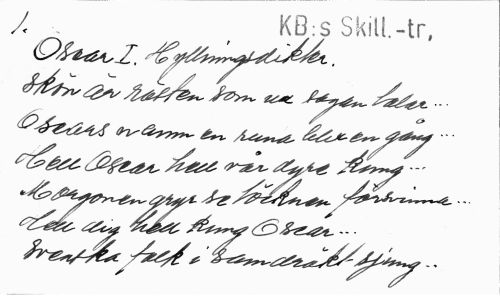 1.
KB:s Skill.-tr,
Oscar I. Hyllningsdikter.
Skön är rösten som ur sagan talar...
Oscars namn en runa blir en gång...
Hell Oscar hell vår dyre kung...
Morgonen gryr se töcknen försvinna...
Hell dig hell kung Oscar...
Svenska folk i samdräkt sjung..